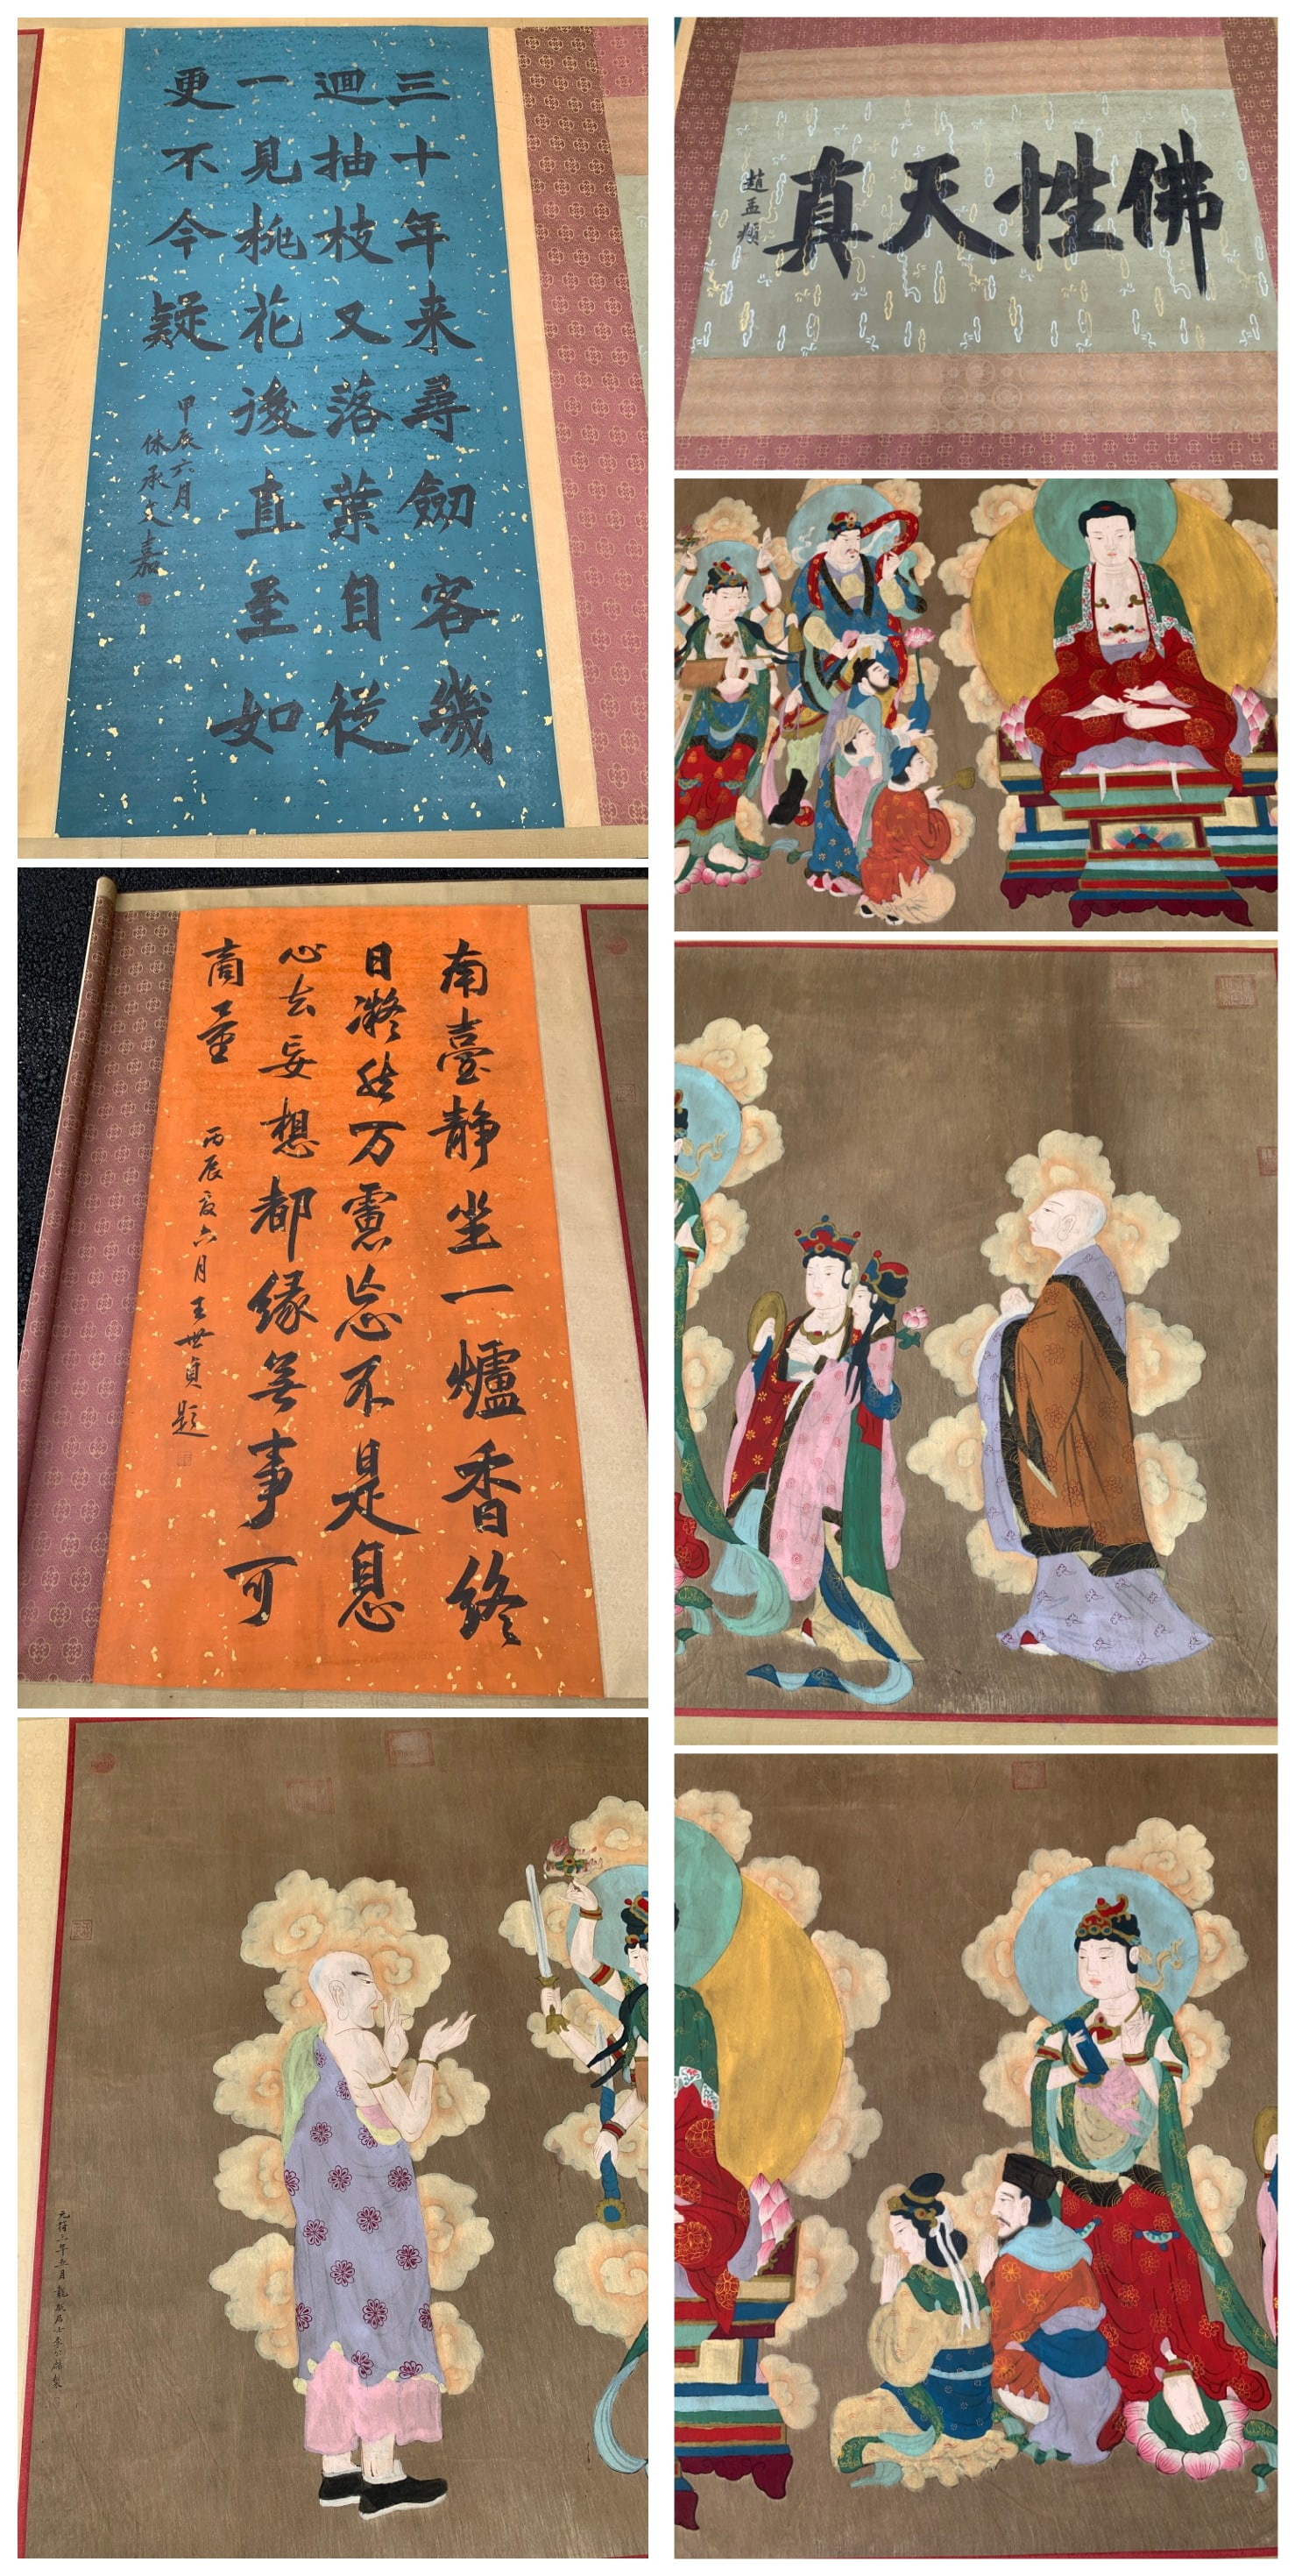 三十年来尋劒客幾
迴抽枝又落葉自從
一見桃花後直至如
更不今疑
甲辰六月
休承文嘉
佛性天真
趙孟頫
南臺静坐一爐香終
日凝然万慮忘不是息
心去妄想都緣無事可
商量
丙辰夏六月王世貞題
元符三年五月龍眠居士李公麟製